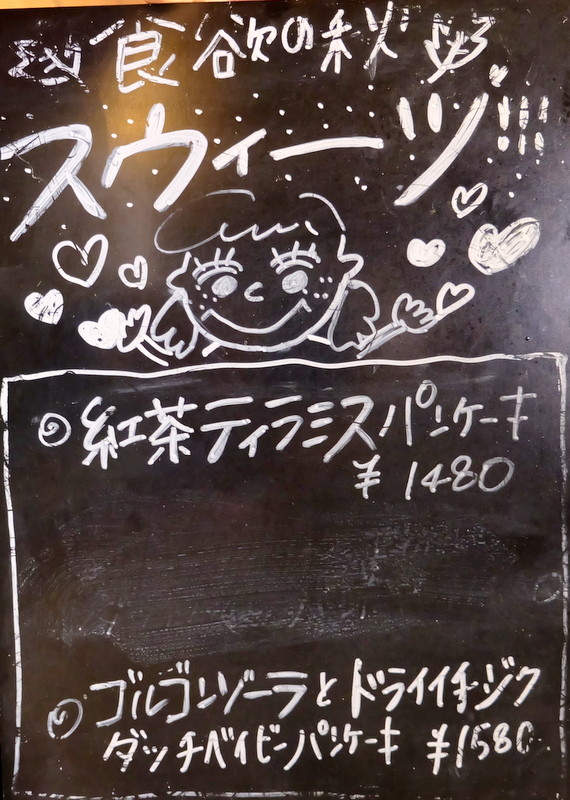 食欲の秋
スウィーツ!!!
紅茶ティラミスパンケーキ
¥1480
ゴルゴンゾーラとドライイチジク
ダッチベイビーパンケーキ ¥1580